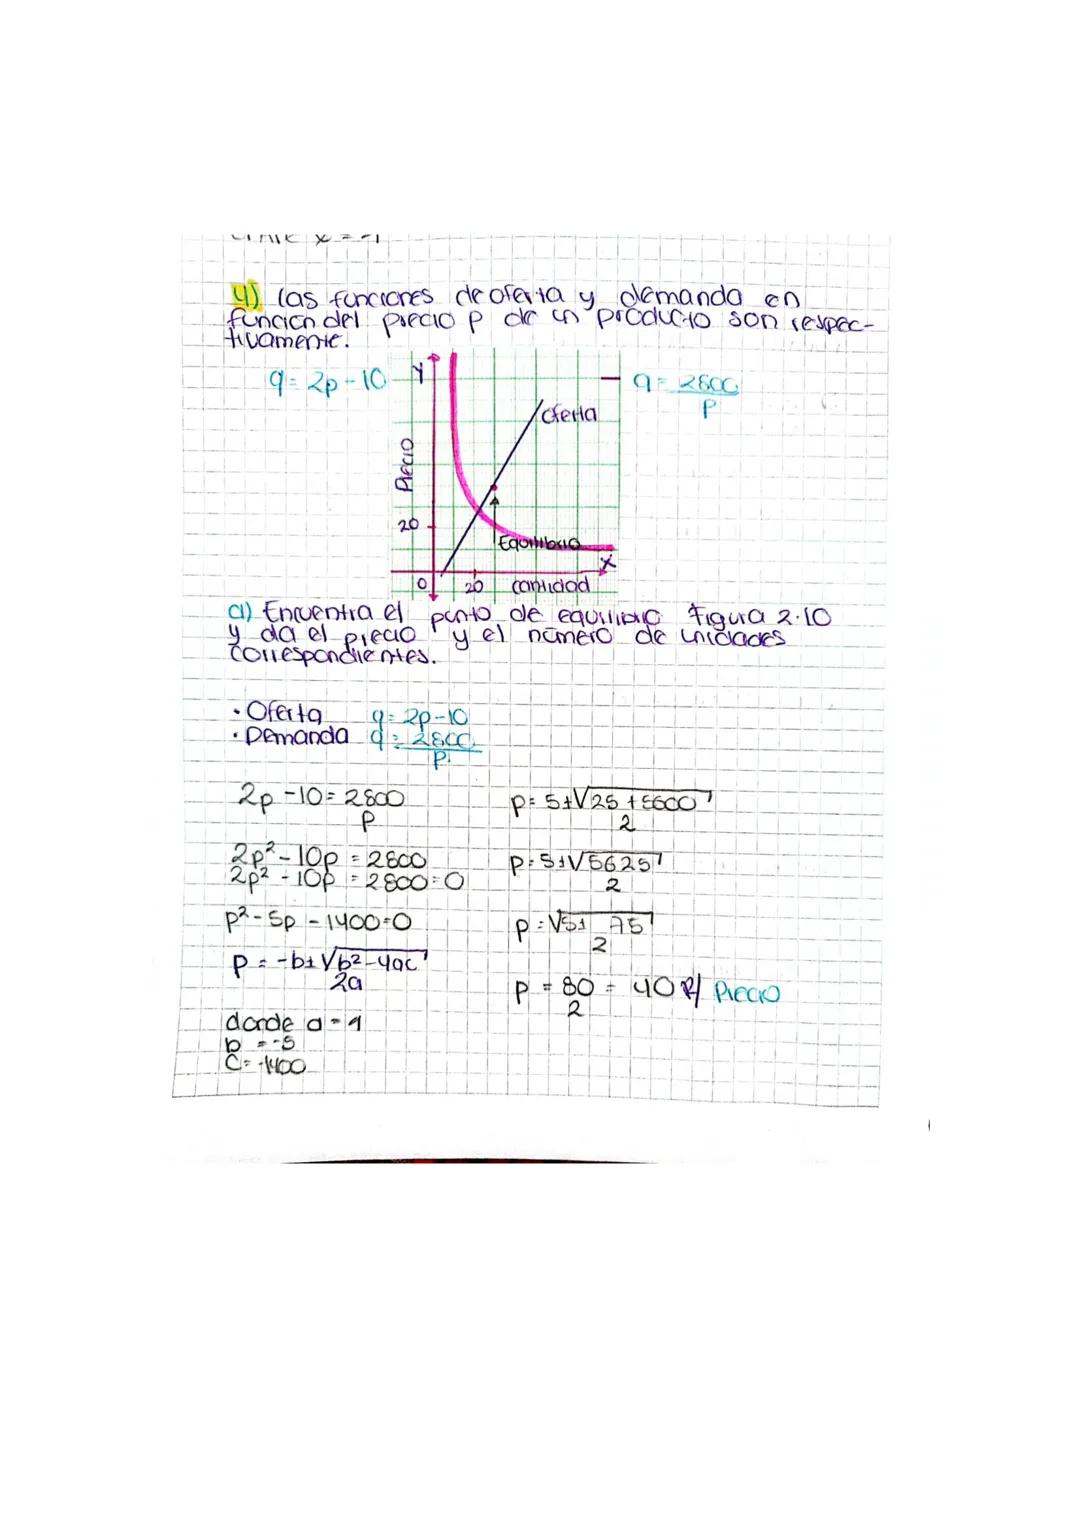 4) las funciones de oferta y demanda en
función del precio p de un producto son respec-
tivamente.
q = 2p - 10
q = 2800
p
Y
Oferta
Precio
20
Equilibrio
X
0
20
cantidad
a) Encuentra el punto de equilibrio Figura 2.10
y da el precio y el número de unidades
correspondientes.
• Oferta q = 2p-10
• Demanda q = 2800
p.
2p - 10 = 2800
p
2p² - 10p = 2800
2p² - 10p = 2800 = 0
p² - 5p - 1400 = 0
p = -b ± √b² - 4ac
2a
donde a = 1
b = -5
c = -1400
p = 5 ± √25 + 5600
2
p = 5 ± √5625
2
p = √5 ± 75
2
p = 80 = 40 R/ Precio
2